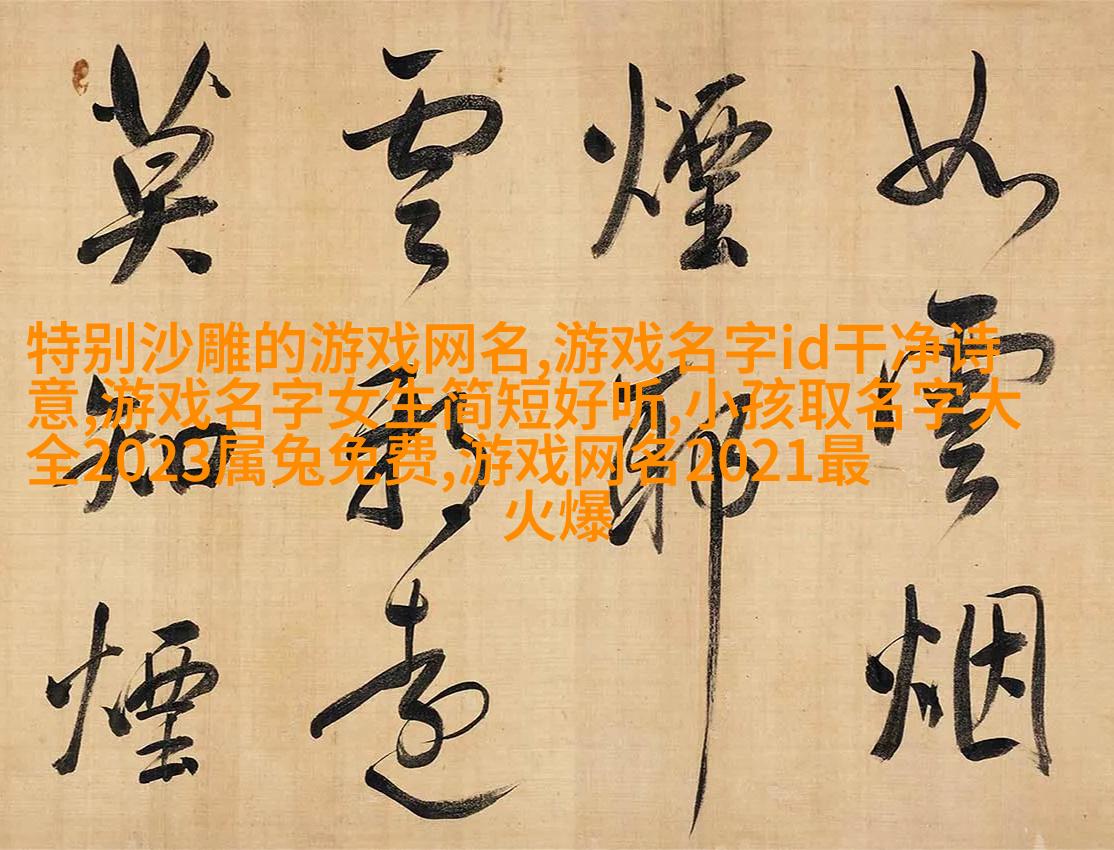 特别沙雕的游戏网名,游戏名字id干净诗
意,游戏名字女生简短好听,小孩取名字大
全2023属兔免费,游戏网名2021最
火爆
如雲烟
煙耶
雲遠
莫知煙